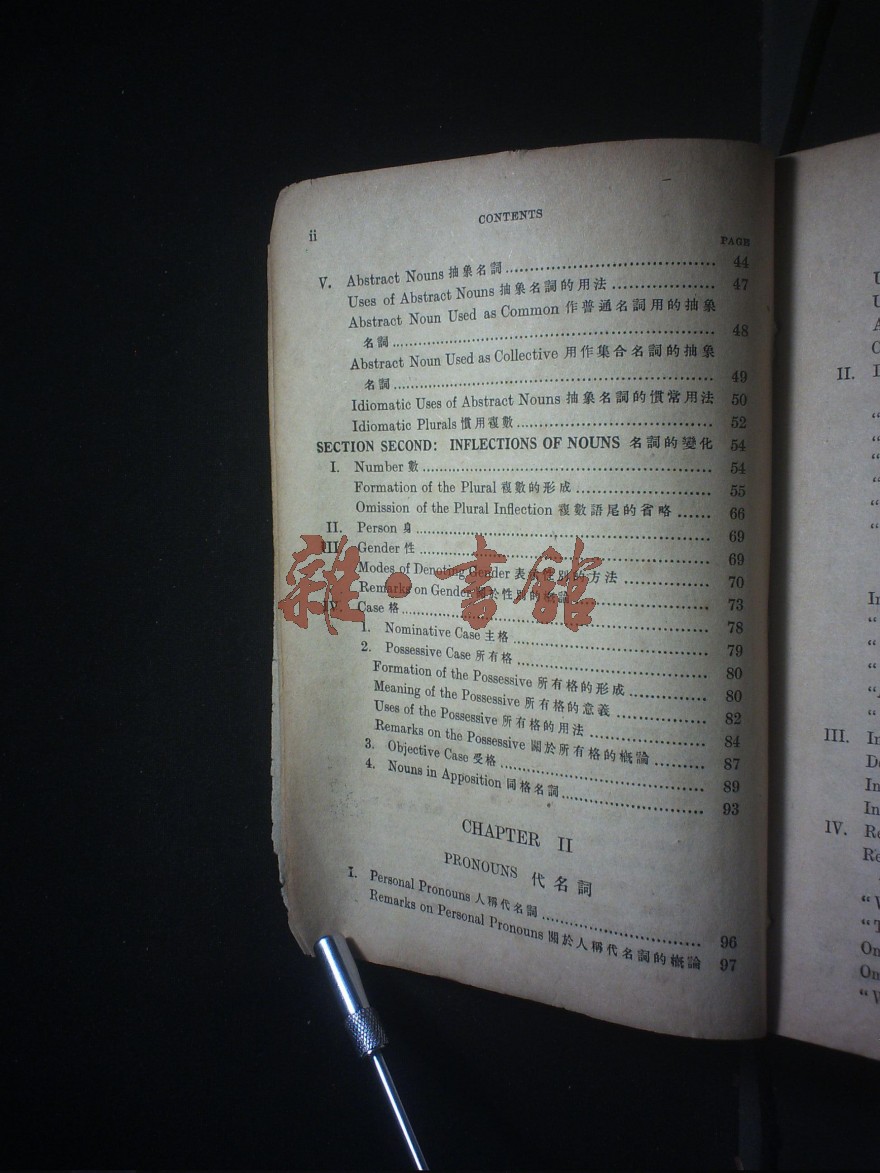 ii
CONTENTS
PAGE
V. Abstract Nouns 抽象名詞 44
Uses of Abstract Nouns 抽象名詞的用法 47
Abstract Noun Used as Common 作普通名詞用的抽象
名詞 48
Abstract Noun Used as Collective 用作集合名詞的抽象
名詞 49
Idiomatic Uses of Abstract Nouns 抽象名詞的慣常用法 50
Idiomatic Plurals 慣用複數 52
SECTION SECOND: INFLECTIONS OF NOUNS 名詞的變化 54
I. Number 數 54
Formation of the Plural 複數的形成 55
Omission of the Plural Inflection 複數語尾的省略 66
II. Person 身 69
III. Gender 性 69
Modes of Denoting Gender 表示性別的方法 70
Remarks on Gender 關於性別的概論 73
IV. Case 格 78
1. Nominative Case 主格 79
2. Possessive Case 所有格 80
Formation of the Possessive 所有格的形成 80
Meaning of the Possessive 所有格的意義 82
Uses of the Possessive 所有格的用法 84
Remarks on the Possessive 關於所有格的概論 87
3. Objective Case 受格 89
4. Nouns in Apposition 同格名詞 93
CHAPTER II
PRONOUNS 代名詞
I. Personal Pronouns 人稱代名詞 96
Remarks on Personal Pronouns 關於人稱代名詞的概論 97
雜·書館
II.
III.
IV.